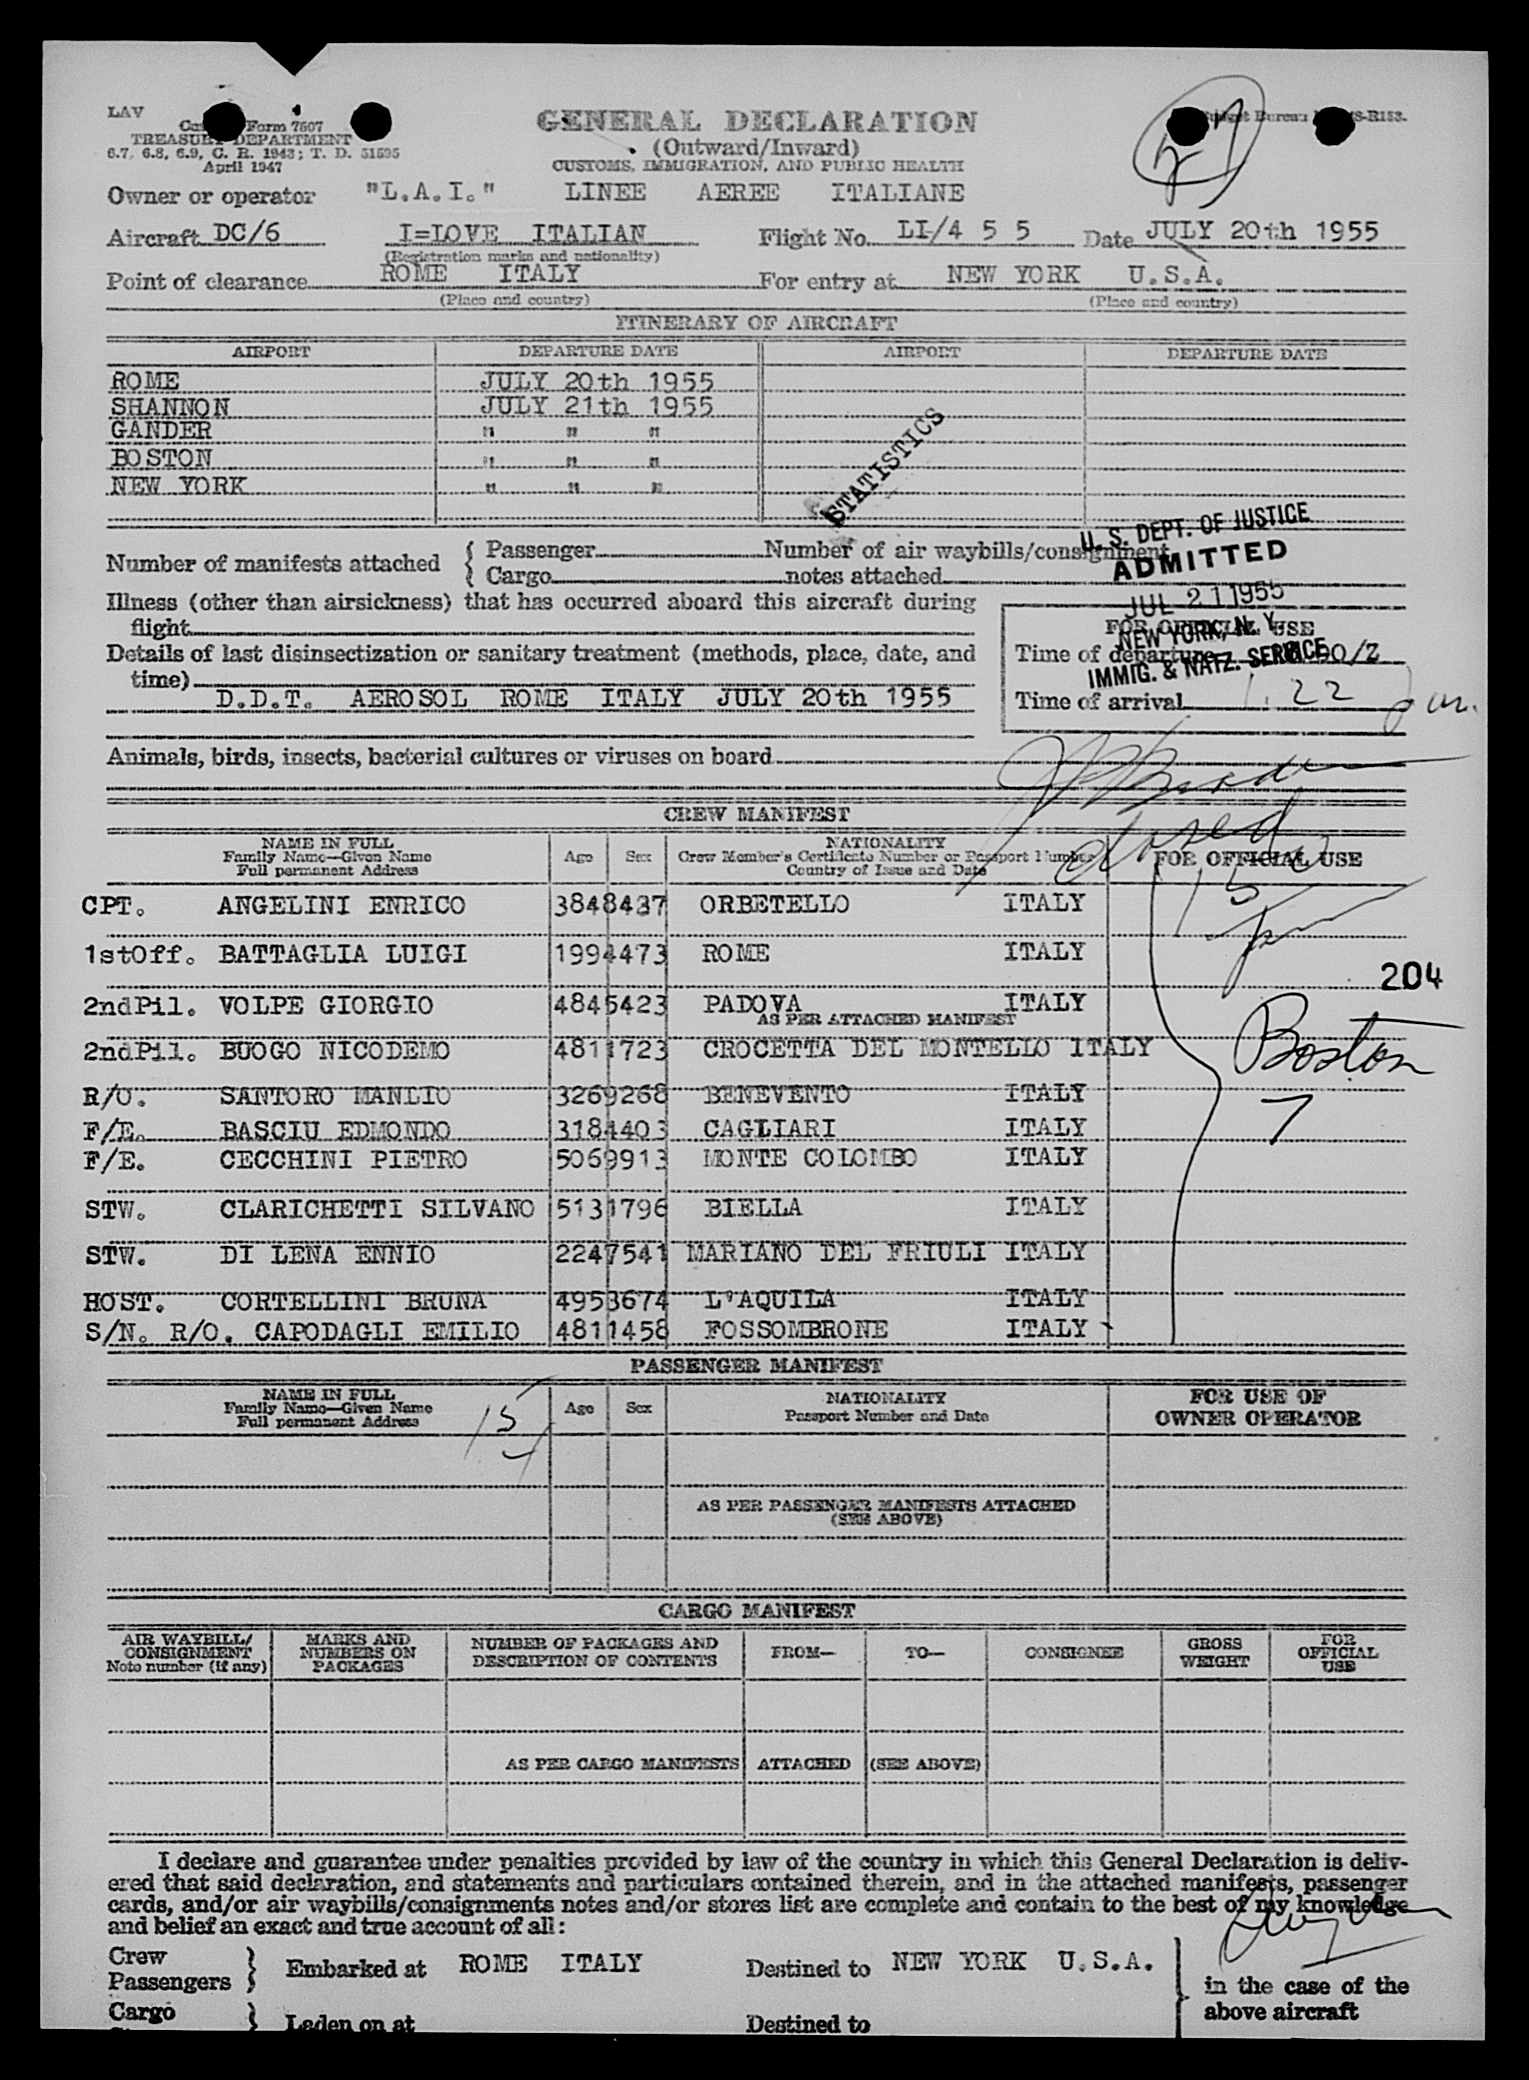 LAV
Form 7507
TREASURY DEPARTMENT
6.7, 6.8, 6.9, C. R. 1943; T. D. 51595
April 1947
GENERAL DECLARATION
(Outward/Inward)
CUSTOMS, IMMIGRATION, AND PUBLIC HEALTH
Budget Bureau
27
Owner or operator "L.A.I." LINEE AEREE ITALIANE
Aircraft DC/6 I=LOVE ITALIAN Flight No. LI/4 5 5 Date JULY 20th 1955
(Registration marks and nationality)
Point of clearance ROME ITALY For entry at NEW YORK U.S.A.
(Place and country) (Place and country)
ITINERARY OF AIRCRAFT
AIRPORT DEPARTURE DATE AIRPORT DEPARTURE DATE
ROME JULY 20th 1955
SHANNON JULY 21th 1955
GANDER " " "
BOSTON " " "
NEW YORK " " "
STATISTICS
U. S. DEPT. OF JUSTICE
ADMITTED
JUL 21 1955
NEW YORK, N. Y.
IMMIG. & NATZ. SERVICE
Number of manifests attached { Passenger Number of air waybills/consignment
{ Cargo notes attached
Illness (other than airsickness) that has occurred aboard this aircraft during
flight
FOR OFFICIAL USE
Details of last disinsectization or sanitary treatment (methods, place, date, and
time)
Time of departure 30/Z
D.D.T. AEROSOL ROME ITALY JULY 20th 1955
Time of arrival 1.22
Animals, birds, insects, bacterial cultures or viruses on board
CREW MANIFEST
NAME IN FULL
Family Name—Given Name
Full permanent Address
Age Sex
NATIONALITY
Crew Member's Certificate Number or Passport Number
Country of Issue and Date
FOR OFFICIAL USE
CPT. ANGELINI ENRICO 3848437 ORBETELLO ITALY
1stOff. BATTAGLIA LUIGI 1994473 ROME ITALY
204
2ndPil. VOLPE GIORGIO 4845423 PADOVA ITALY
AS PER ATTACHED MANIFEST
2ndPil. BUOGO NICODEMO 4811723 CROCETTA DEL MONTELLO ITALY
Boston
7
R/O. SANTORO MANLIO 3269268 BENEVENTO ITALY
F/E. BASCIU EDMONDO 3184403 CAGLIARI ITALY
F/E. CECCHINI PIETRO 5069913 MONTE COLOMBO ITALY
STW. CLARICHETTI SILVANO 5131796 BIELLA ITALY
STW. DI LENA ENNIO 2247541 MARIANO DEL FRIULI ITALY
HOST. CORTELLINI BRUNA 4953674 L'AQUILA ITALY
S/N. R/O. CAPODAGLI EMILIO 4811458 FOSSOMBRONE ITALY
PASSENGER MANIFEST
NAME IN FULL
Family Name—Given Name
Full permanent Address
Age Sex
NATIONALITY
Passport Number and Date
FOR USE OF
OWNER OPERATOR
AS PER PASSENGER MANIFESTS ATTACHED
(SEE ABOVE)
CARGO MANIFEST
AIR WAYBILL/
CONSIGNMENT
Note number (if any)
MARKS AND
NUMBERS ON
PACKAGES
NUMBER OF PACKAGES AND
DESCRIPTION OF CONTENTS
FROM—
TO—
CONSIGNEE
GROSS
WEIGHT
FOR
OFFICIAL
USE
AS PER CARGO MANIFESTS ATTACHED (SEE ABOVE)
I declare and guarantee under penalties provided by law of the country in which this General Declaration is deliv-
ered that said declaration, and statements and particulars contained therein, and in the attached manifests, passenger
cards, and/or air waybills/consignments notes and/or stores list are complete and contain to the best of my knowledge
and belief an exact and true account of all:
Crew
Passengers } Embarked at ROME ITALY Destined to NEW YORK U.S.A.
in the case of the
above aircraft
Cargo } Laden on at Destined to